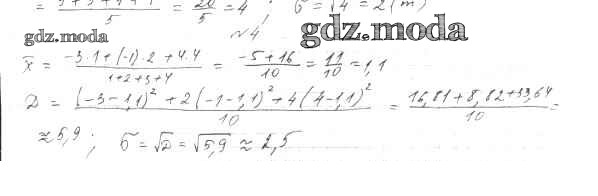 = 5 = 20/5 = 4 ; б = √4 = 2 (m)
gdz.moda
№4
gdz.moda
x̅ = (-3·1+(-1)·2+4·4)/(1+2+3+4) = (-5+16)/10 = 11/10 = 1,1
D = ((-3-1,1)² + 2(-1-1,1)² + 4(4-1,1)²)/10 = (16,81+8,82+33,64)/10 =
≈ 5,9 ; б = √D = √5,9 ≈ 2,5